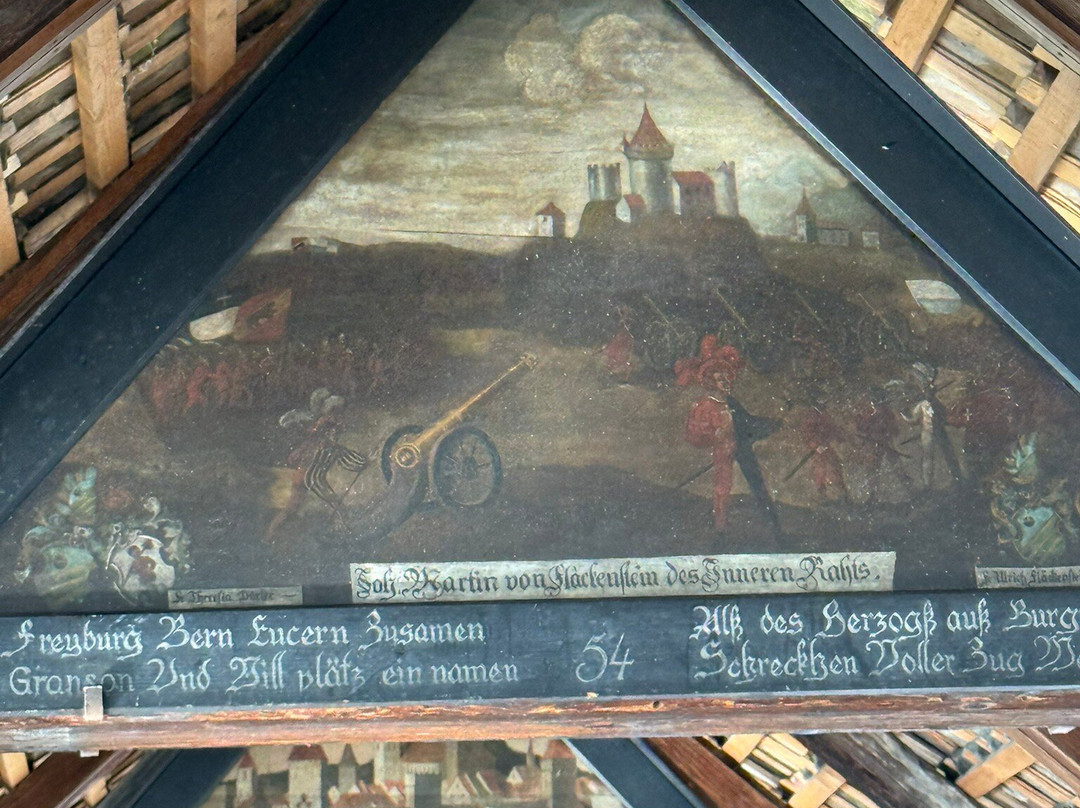 Joh. Martin von Fläckenstein des Inneren Rahts.
Fr Theresia
Fr Ulrich Fläckenste
Freyburg Bern Lucern Zusamen
Granson Und Vill plätz ein namen
54
Alß des Herzogß auß Burg
Schreckhen Voller Zug We